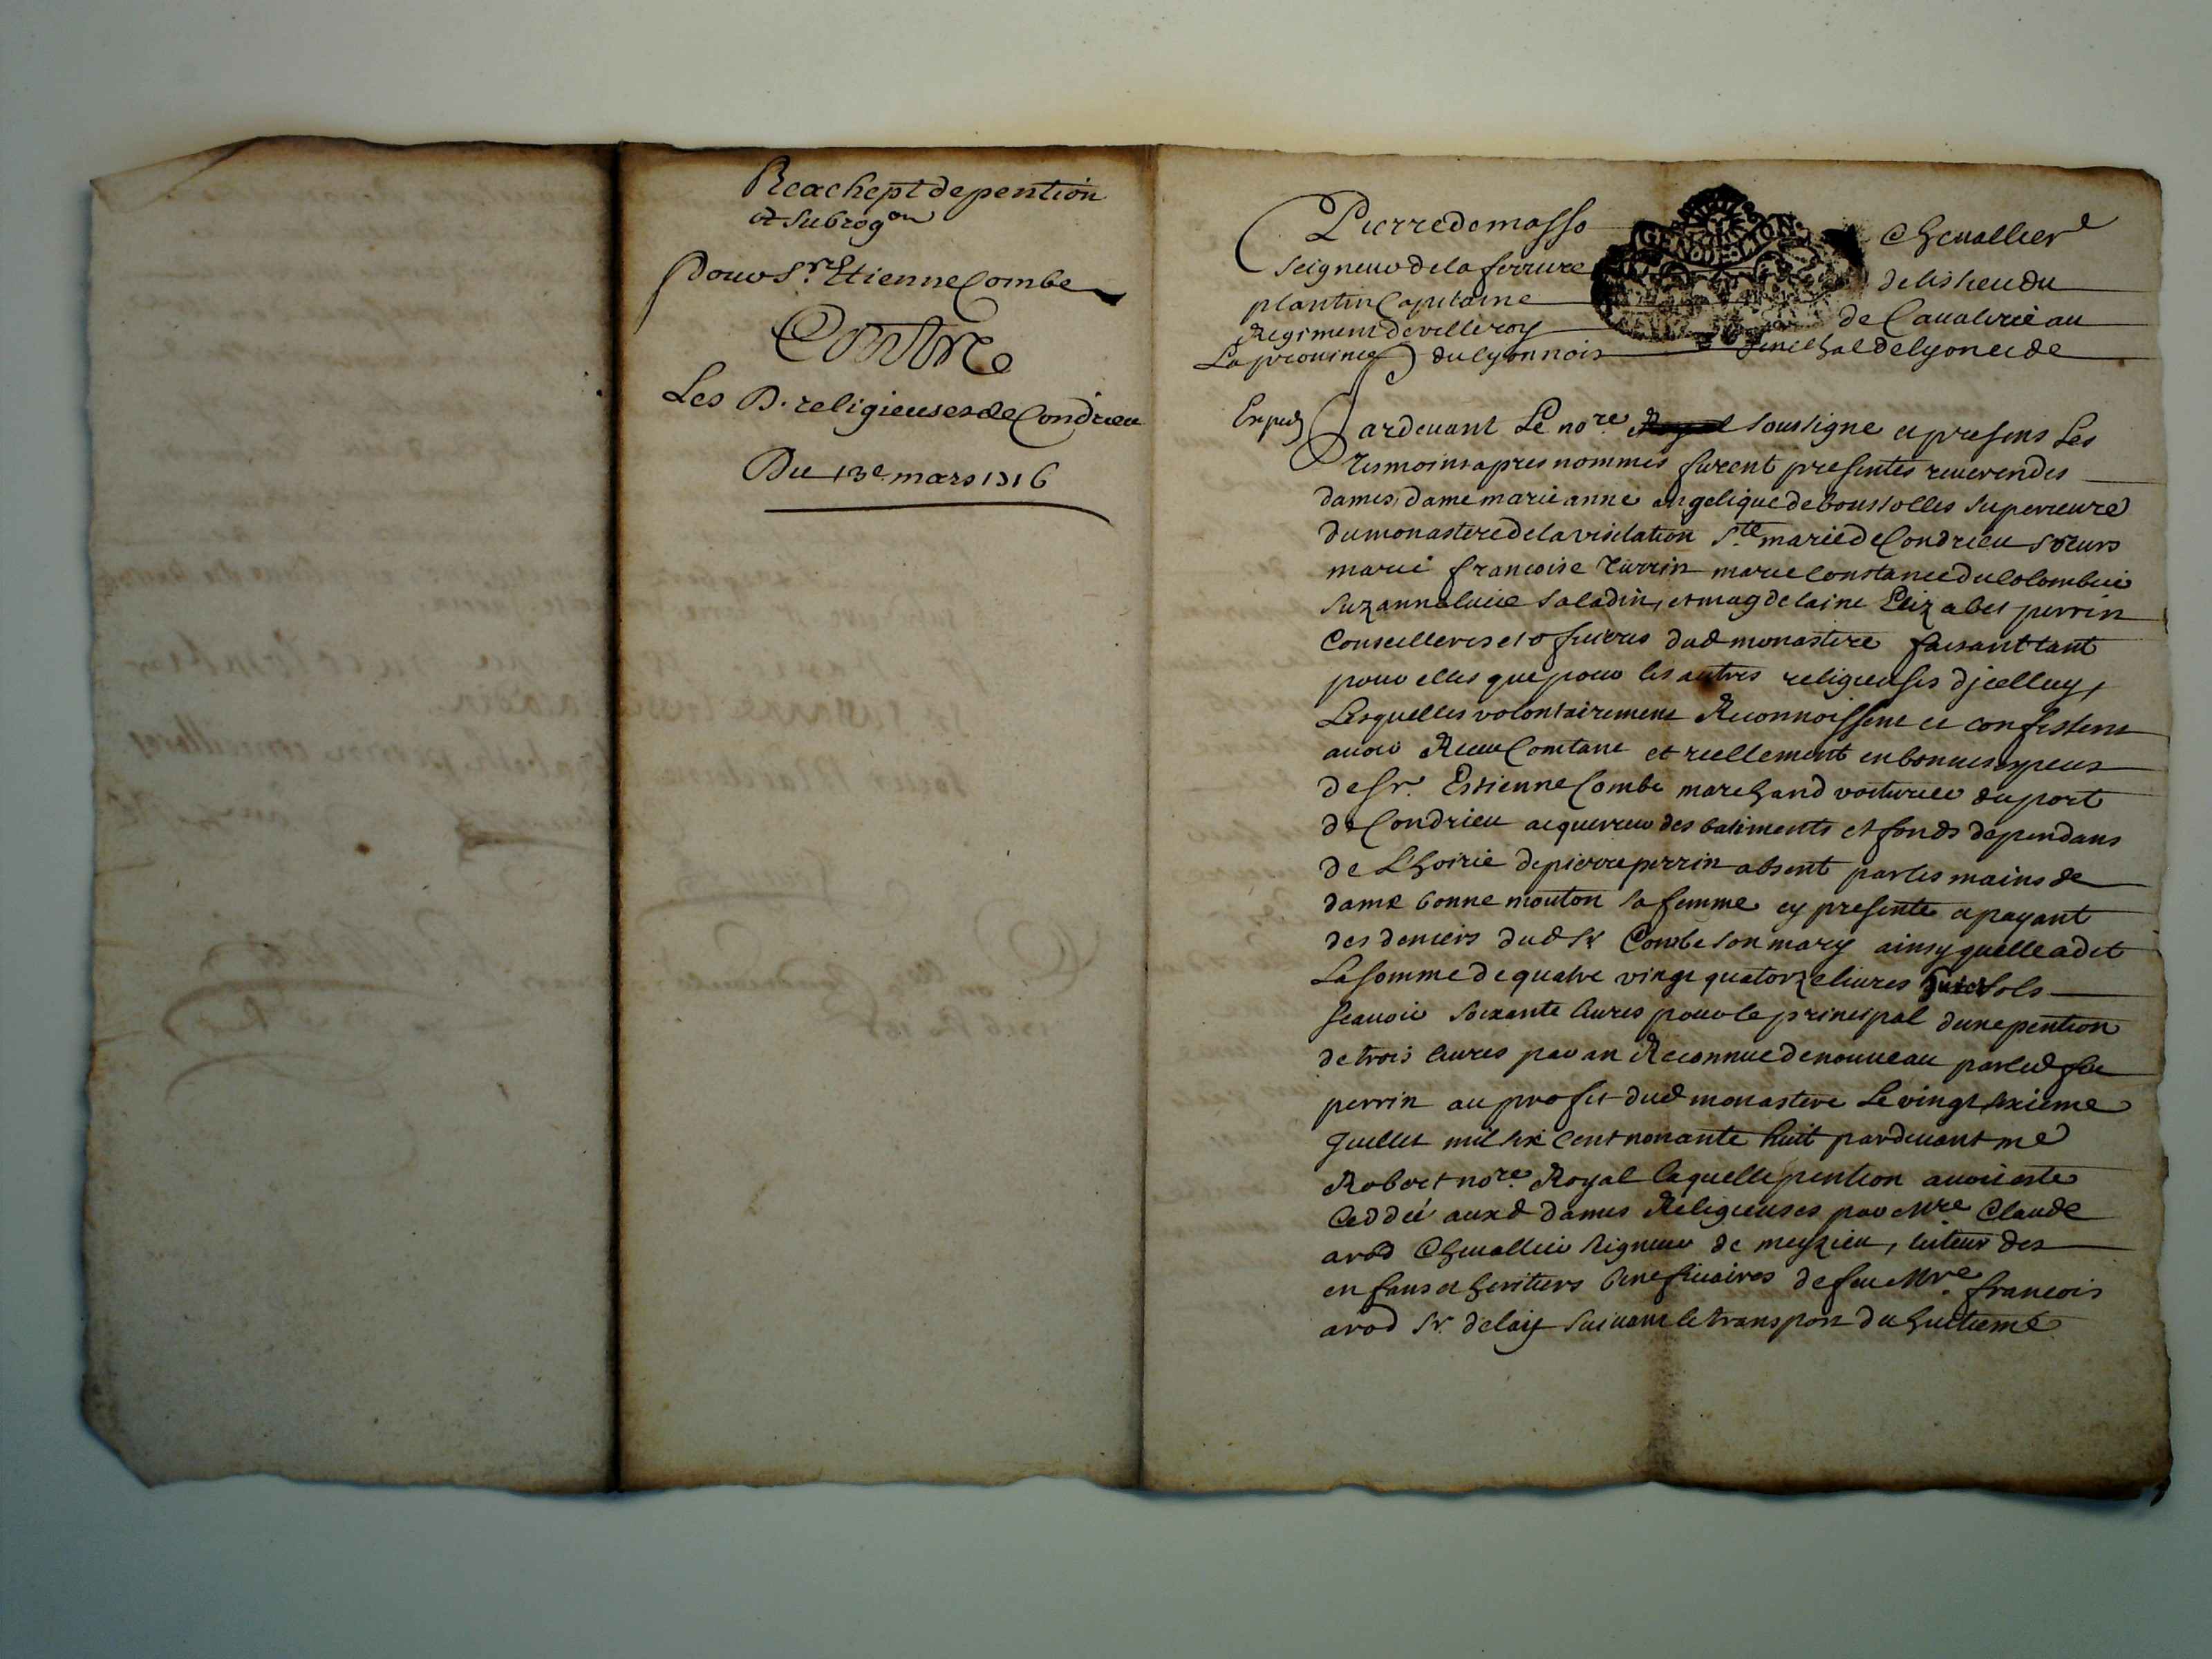 Reachept de pention
et subrog.on
Pour Sr. Etienne Combe
Contre
Les D. religieuses de Condrieu
Du 13e mars 1716
Pierre de masso Chevallier
seigneur de la ferriere de lisle du
plantin Capitaine de Cavalerie au
Regiment de villeroy senechal de lyon et de
La province du lyonnois
GENERALITE
DE LYON
Exped
Pardevant Le nore. soussigné et presens Les
tesmoins apres nommés furent presentes reverendes
dames, dame marie anne angelique de boussolles superieure
du monastere de la visitation Ste. marie de Condrieu sœurs
marie francoise Turrin marie Constance du Colombier
suzanne lucie saladin, et magdelaine Elizabet perrin
Conseilleres et oficieres dud monastere faisant tant
pour elles que pour les autres religieuses djcelluy,
Lesquelles volontairement Reconnoissent et confessent
avoir Receu Comtant et reellement en bonnes especes
de sr. Estienne Combe marchand voiturier du port
de Condrieu acquereur des batiments et fonds dependans
de Lhoirie de pierre perrin absent par les mains de
dame bonne mouton sa femme cy presente et payant
des deniers dud sr Combe son mary ainsy quelle a dit
La somme de quatre vingt quatorze livres sols
scavoir soixante livres pour le principal dune pention
de trois livres par an Reconnue de nouveau par led feu
perrin au profit dud monastere Le vingt sixieme
Juillet mil six cent nonante huit pardevant me
Robert nore. Royal laquelle pention avoit esté
Ceddée auxd dames Religieuses par Mre Claude
arod Chevallier seigneur de meyzieu, tuteur des
enfans et heritiers beneficiaires de feu Mre. francois
arod sr. de lay suivant le transport du huitieme